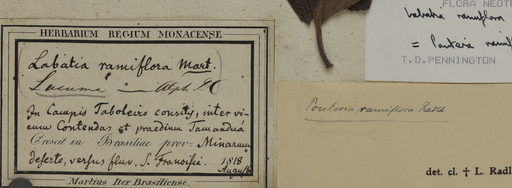 HERBARIUM REGIUM MONACENSE.
Labatia ramiflora Mart.
Lucuma — Alph. DC
In Campis Taboleiro consitis, inter vi-
cum Contendas et praedium Tamanduá
Crescit in Brasiliae prov: Minarum
deserto, versus fluv. S. Francisci. 1818
August
Martius Iter Brasiliense.
FLORA NEOTR
Labatia ramiflora
= Pouteria ramifl
T.D. PENNINGTON
Pouteria ramiflora Radlk
Lucuma
det. cl. † L. Radl